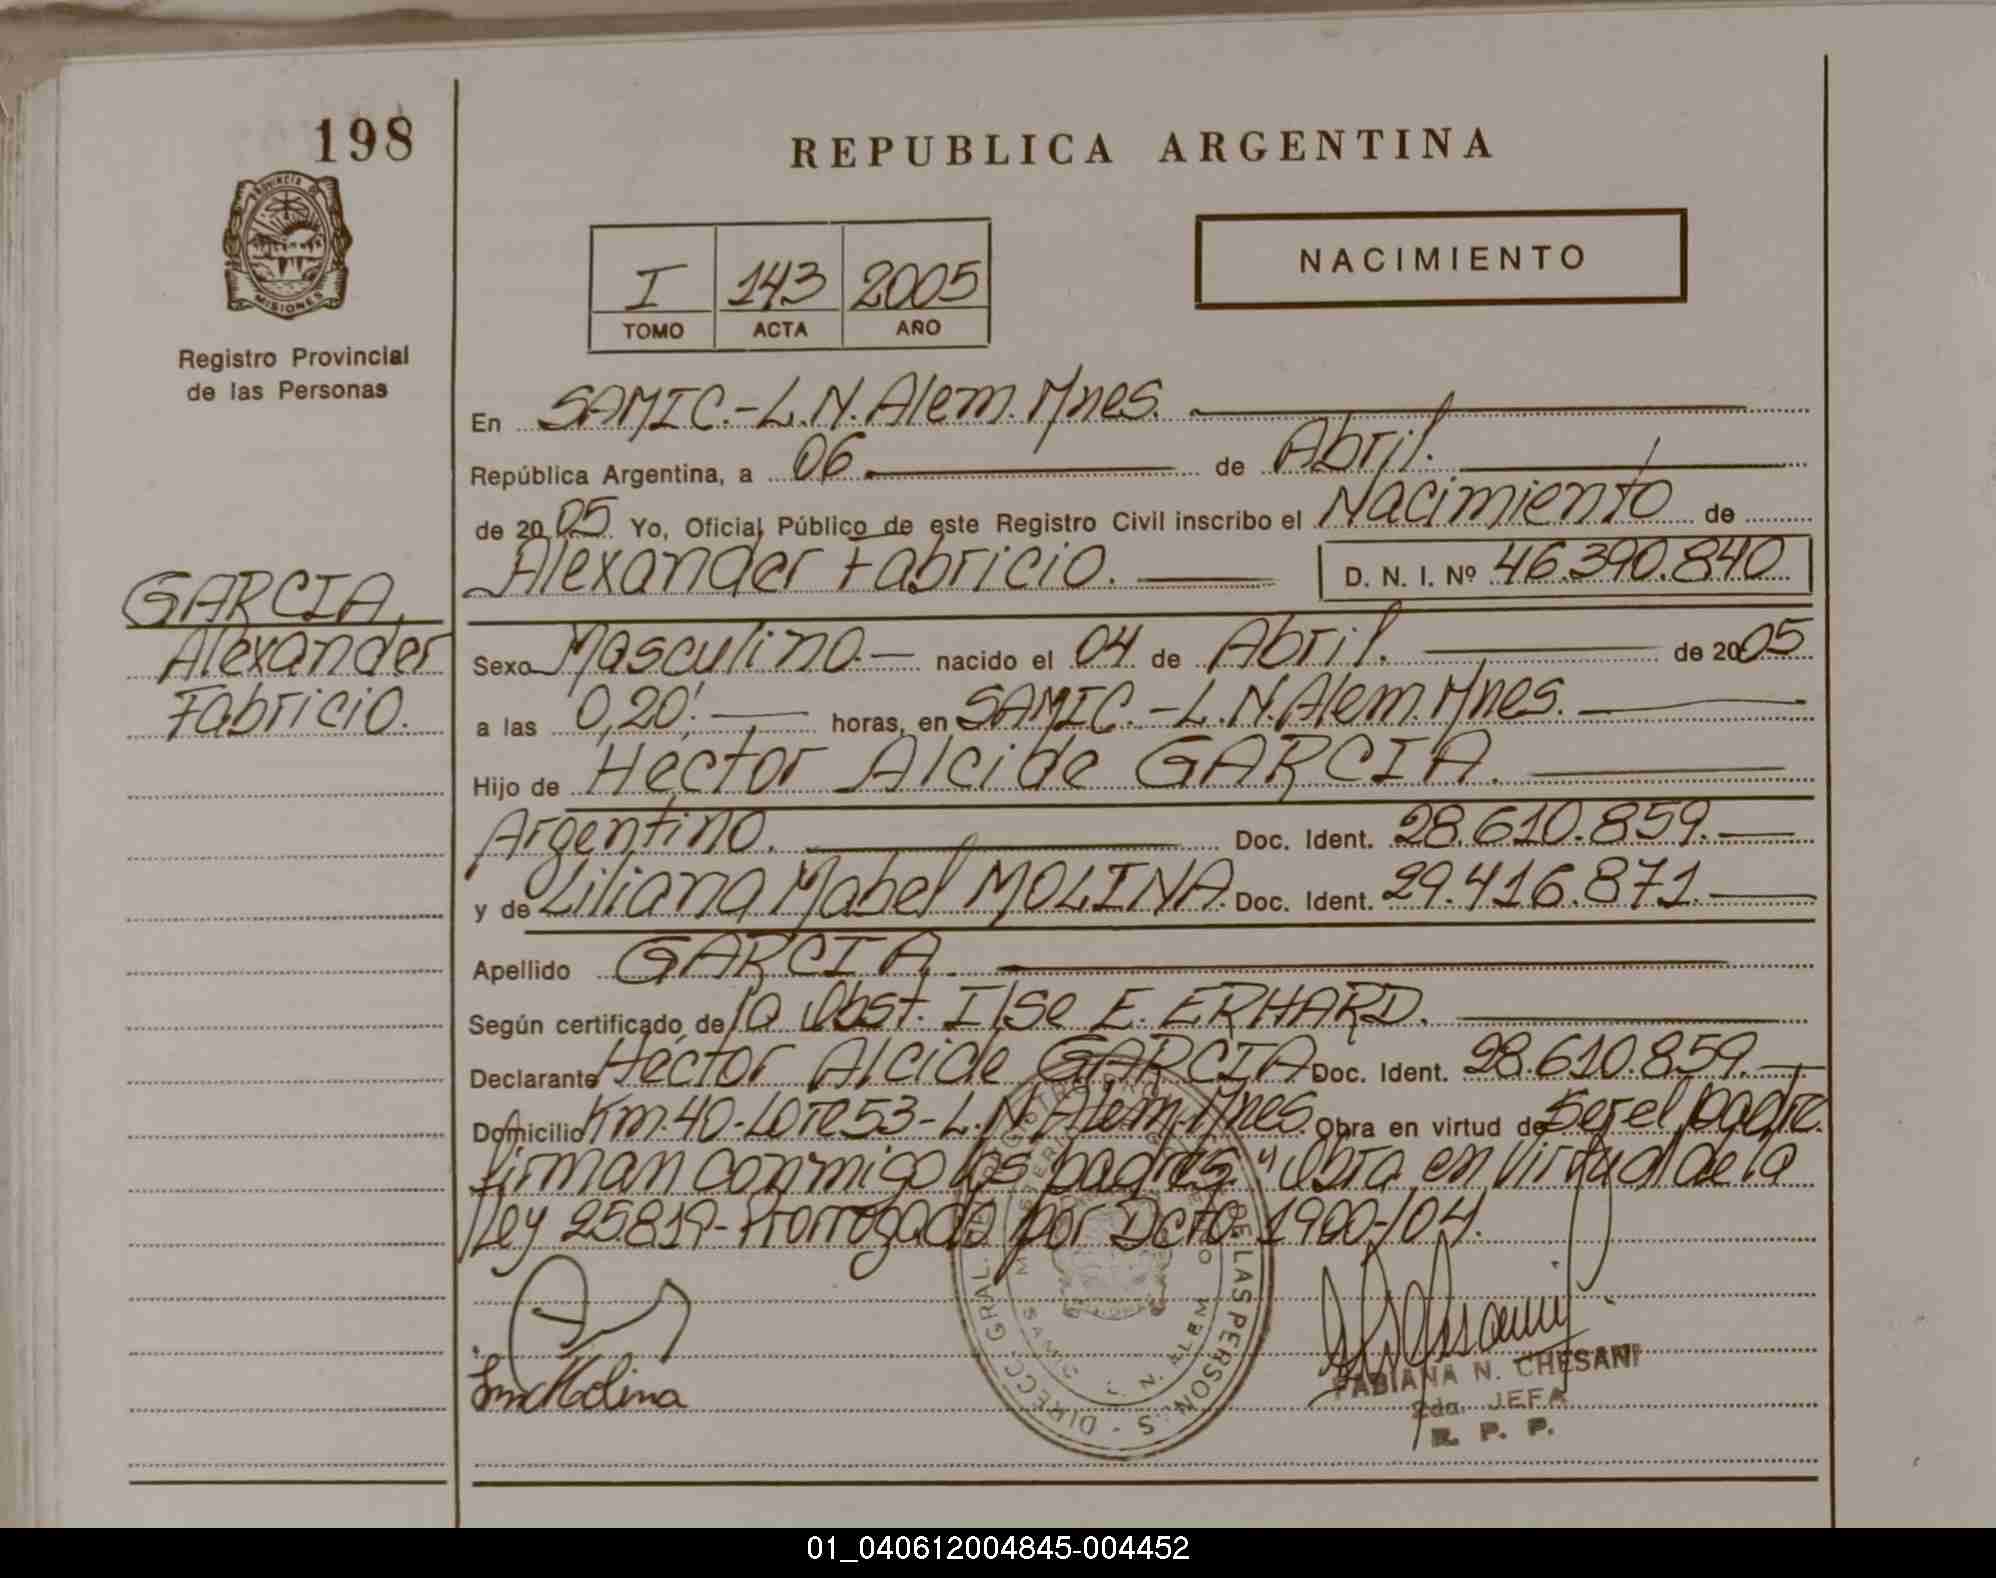 198
PROVINCIA D
MISIONES
Registro Provincial
de las Personas
GARCIA,
Alexander
Fabricio.
REPUBLICA ARGENTINA
I 143 2005
TOMO ACTA AÑO
NACIMIENTO
En SAMIC.-L.N.Alem.Mnes.
República Argentina, a 06 de Abril.
de 2005 Yo, Oficial Público de este Registro Civil inscribo el Nacimiento de
Alexander Fabricio. D. N. I. Nº 46.390.840
Sexo Masculino.- nacido el 04 de Abril. de 2005
a las 0,20'. horas, en SAMIC.-L.N.Alem.Mnes.
Hijo de Héctor Alcide GARCIA.
Argentino. Doc. Ident. 28.610.859.-
y de Liliana Mabel MOLINA. Doc. Ident. 29.416.871.-
Apellido GARCIA.
Según certificado de la Obst. Ilse E. ERHARD.
Declarante Héctor Alcide GARCIA Doc. Ident. 28.610.859.-
Domicilio Km.40-Lote 53-L.N.Alem.Mnes. Obra en virtud de Ser el padre.
firman conmigo los padres." Obra en Virtud de la
Ley 25.819-Prorrogada por Dcto. 1900-/04.
Molina
FABIANA N. CHESANI
2da. JEFA
R. P. P.
DIRECC. GRAL. DE LAS PERSONAS
L. N. ALEM
01_040612004845-004452